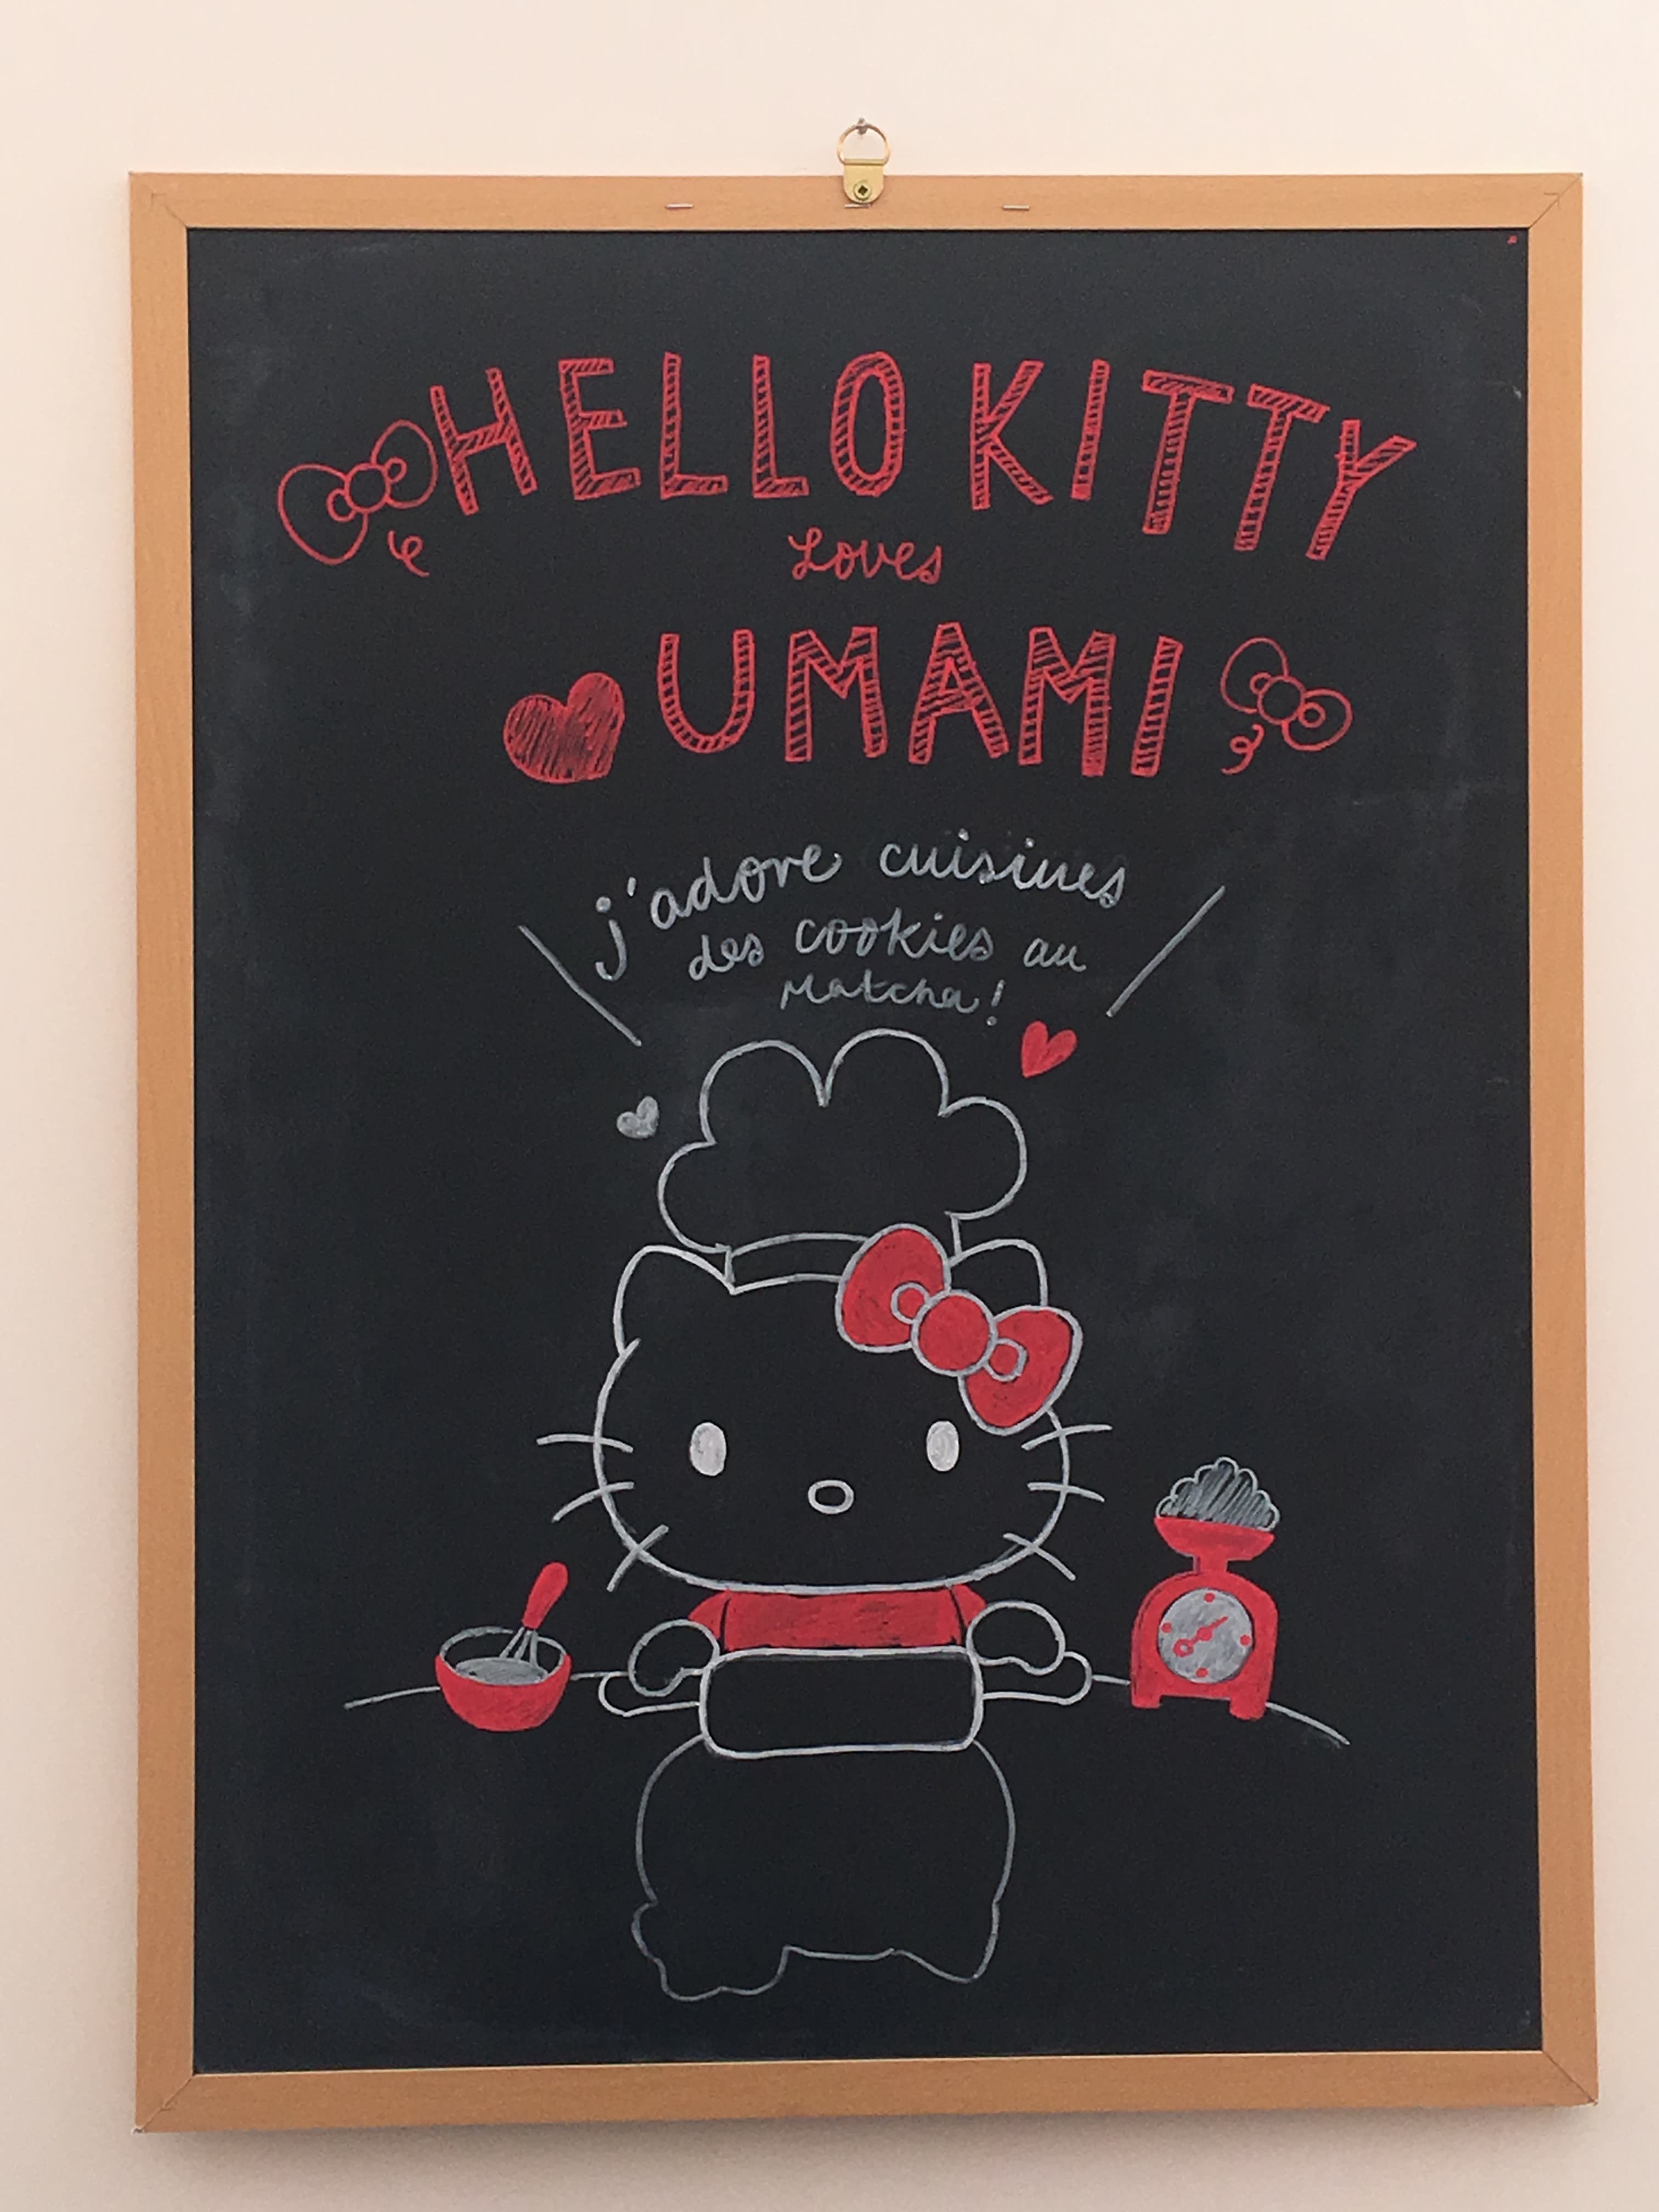 HELLO KITTY
Loves
UMAMI
j'adore cuisines
des cookies au
Matcha!